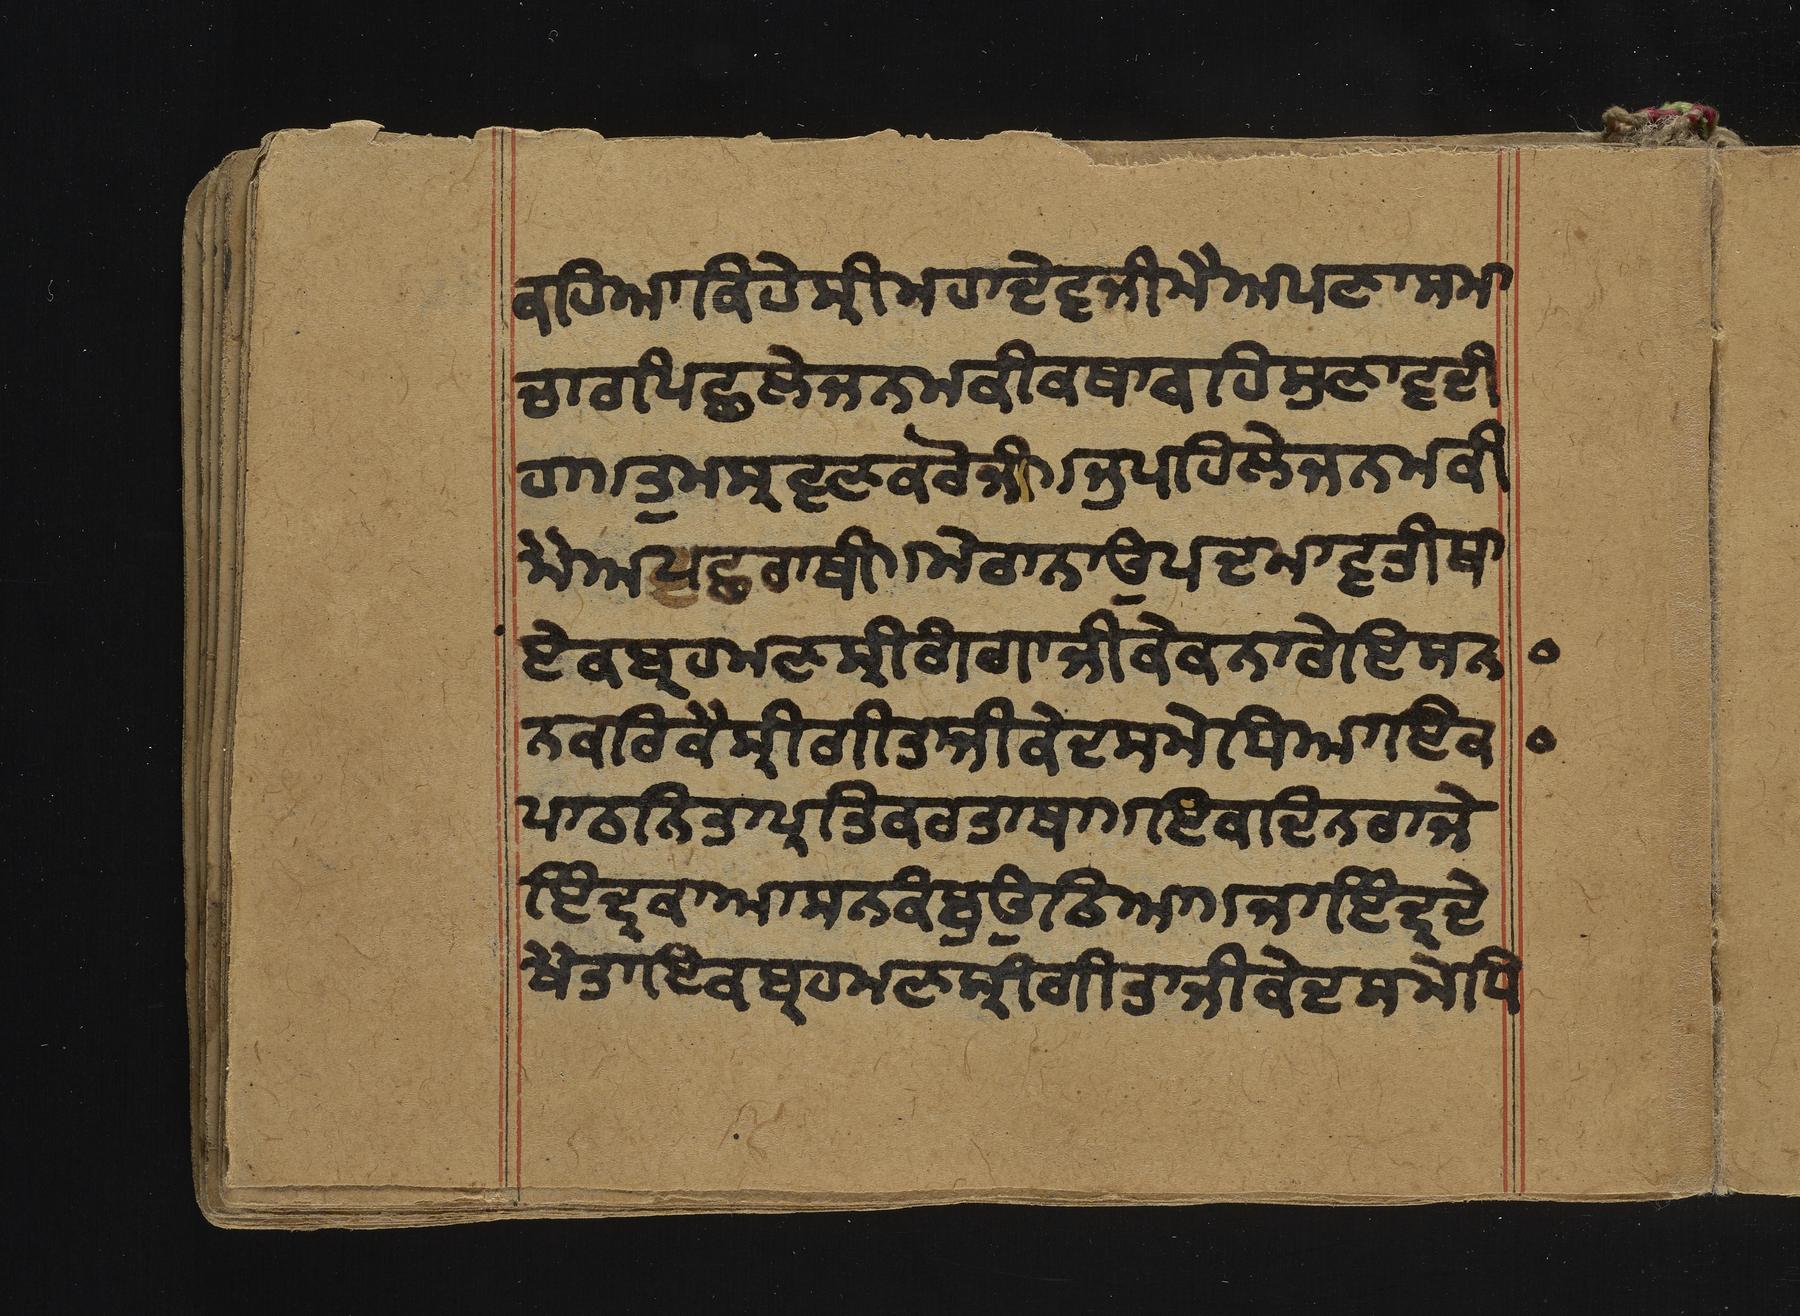 ਕਹਿਆਕਿਹੇਸ੍ਰੀਮਹਾਦੇਵਜੀਮੈਅਪਣਾਸਮਾ
ਚਾਰਪਿਛਲੇਜਨਮਕੀਕਥਾਕਹਿਸੁਣਾਵਦੀ
ਹਾਂ।ਤੁਮਸ੍ਰਵਣਕਰੋਜੀ।ਜੁਪਹਿਲੇਜਨਮਕੀ
ਮੈਅਪਛਰਾਥੀ।ਮੇਰਾਨਾਉਪਦਮਾਵਤੀਥਾ
ਏਕਬ੍ਰਹਮਣਸ੍ਰੀਗੰਗਾਜੀਕੇਕਨਾਰੇਇਸਨ
ਨਕਰਿਕੈਸ੍ਰੀਗੀਤਾਜੀਕੇਦਸਮੇਧਿਆਇਕ
ਪਾਠਨਿਤਾਪ੍ਰਤਿਕਰਤਾਥਾ।ਇਕਦਿਨਰਾਜੇ
ਇੰਦ੍ਰਕਾਆਸਨਕੰਬੁਉਠਿਆ।ਜਾਇੰਦ੍ਰਦੇ
ਖੈਤਾਇਕਬ੍ਰਹਮਣਸ੍ਰੀਗੀਤਾਜੀਕੇਦਸਮੇਧਿ